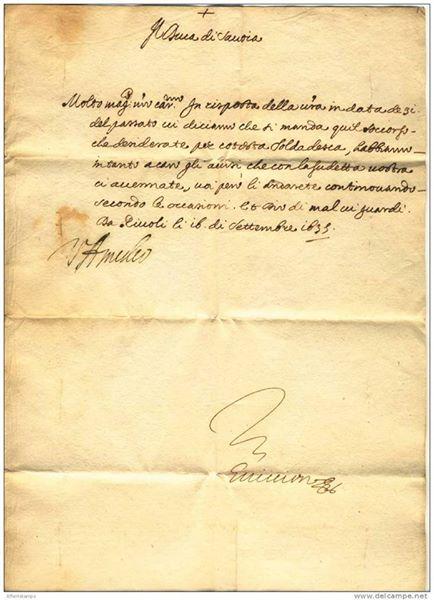 +
Il Duca di Savoia
Molto mag.co n͞ro car.mo In risposta della v͞ra in data de 31
del passato vi diciamo che si manda qui il soccorso
che desiderate per cotesta soldadesca, habbiamo
intanto a caro gli avisi che con la sudetta vostra
ci avete dati, voi però li andarete continovando
secondo le occasioni. Et Dio di mal vi guardi.
Da Rivoli li 16. di Settembre 1635
V Amedeo
delcampe.net